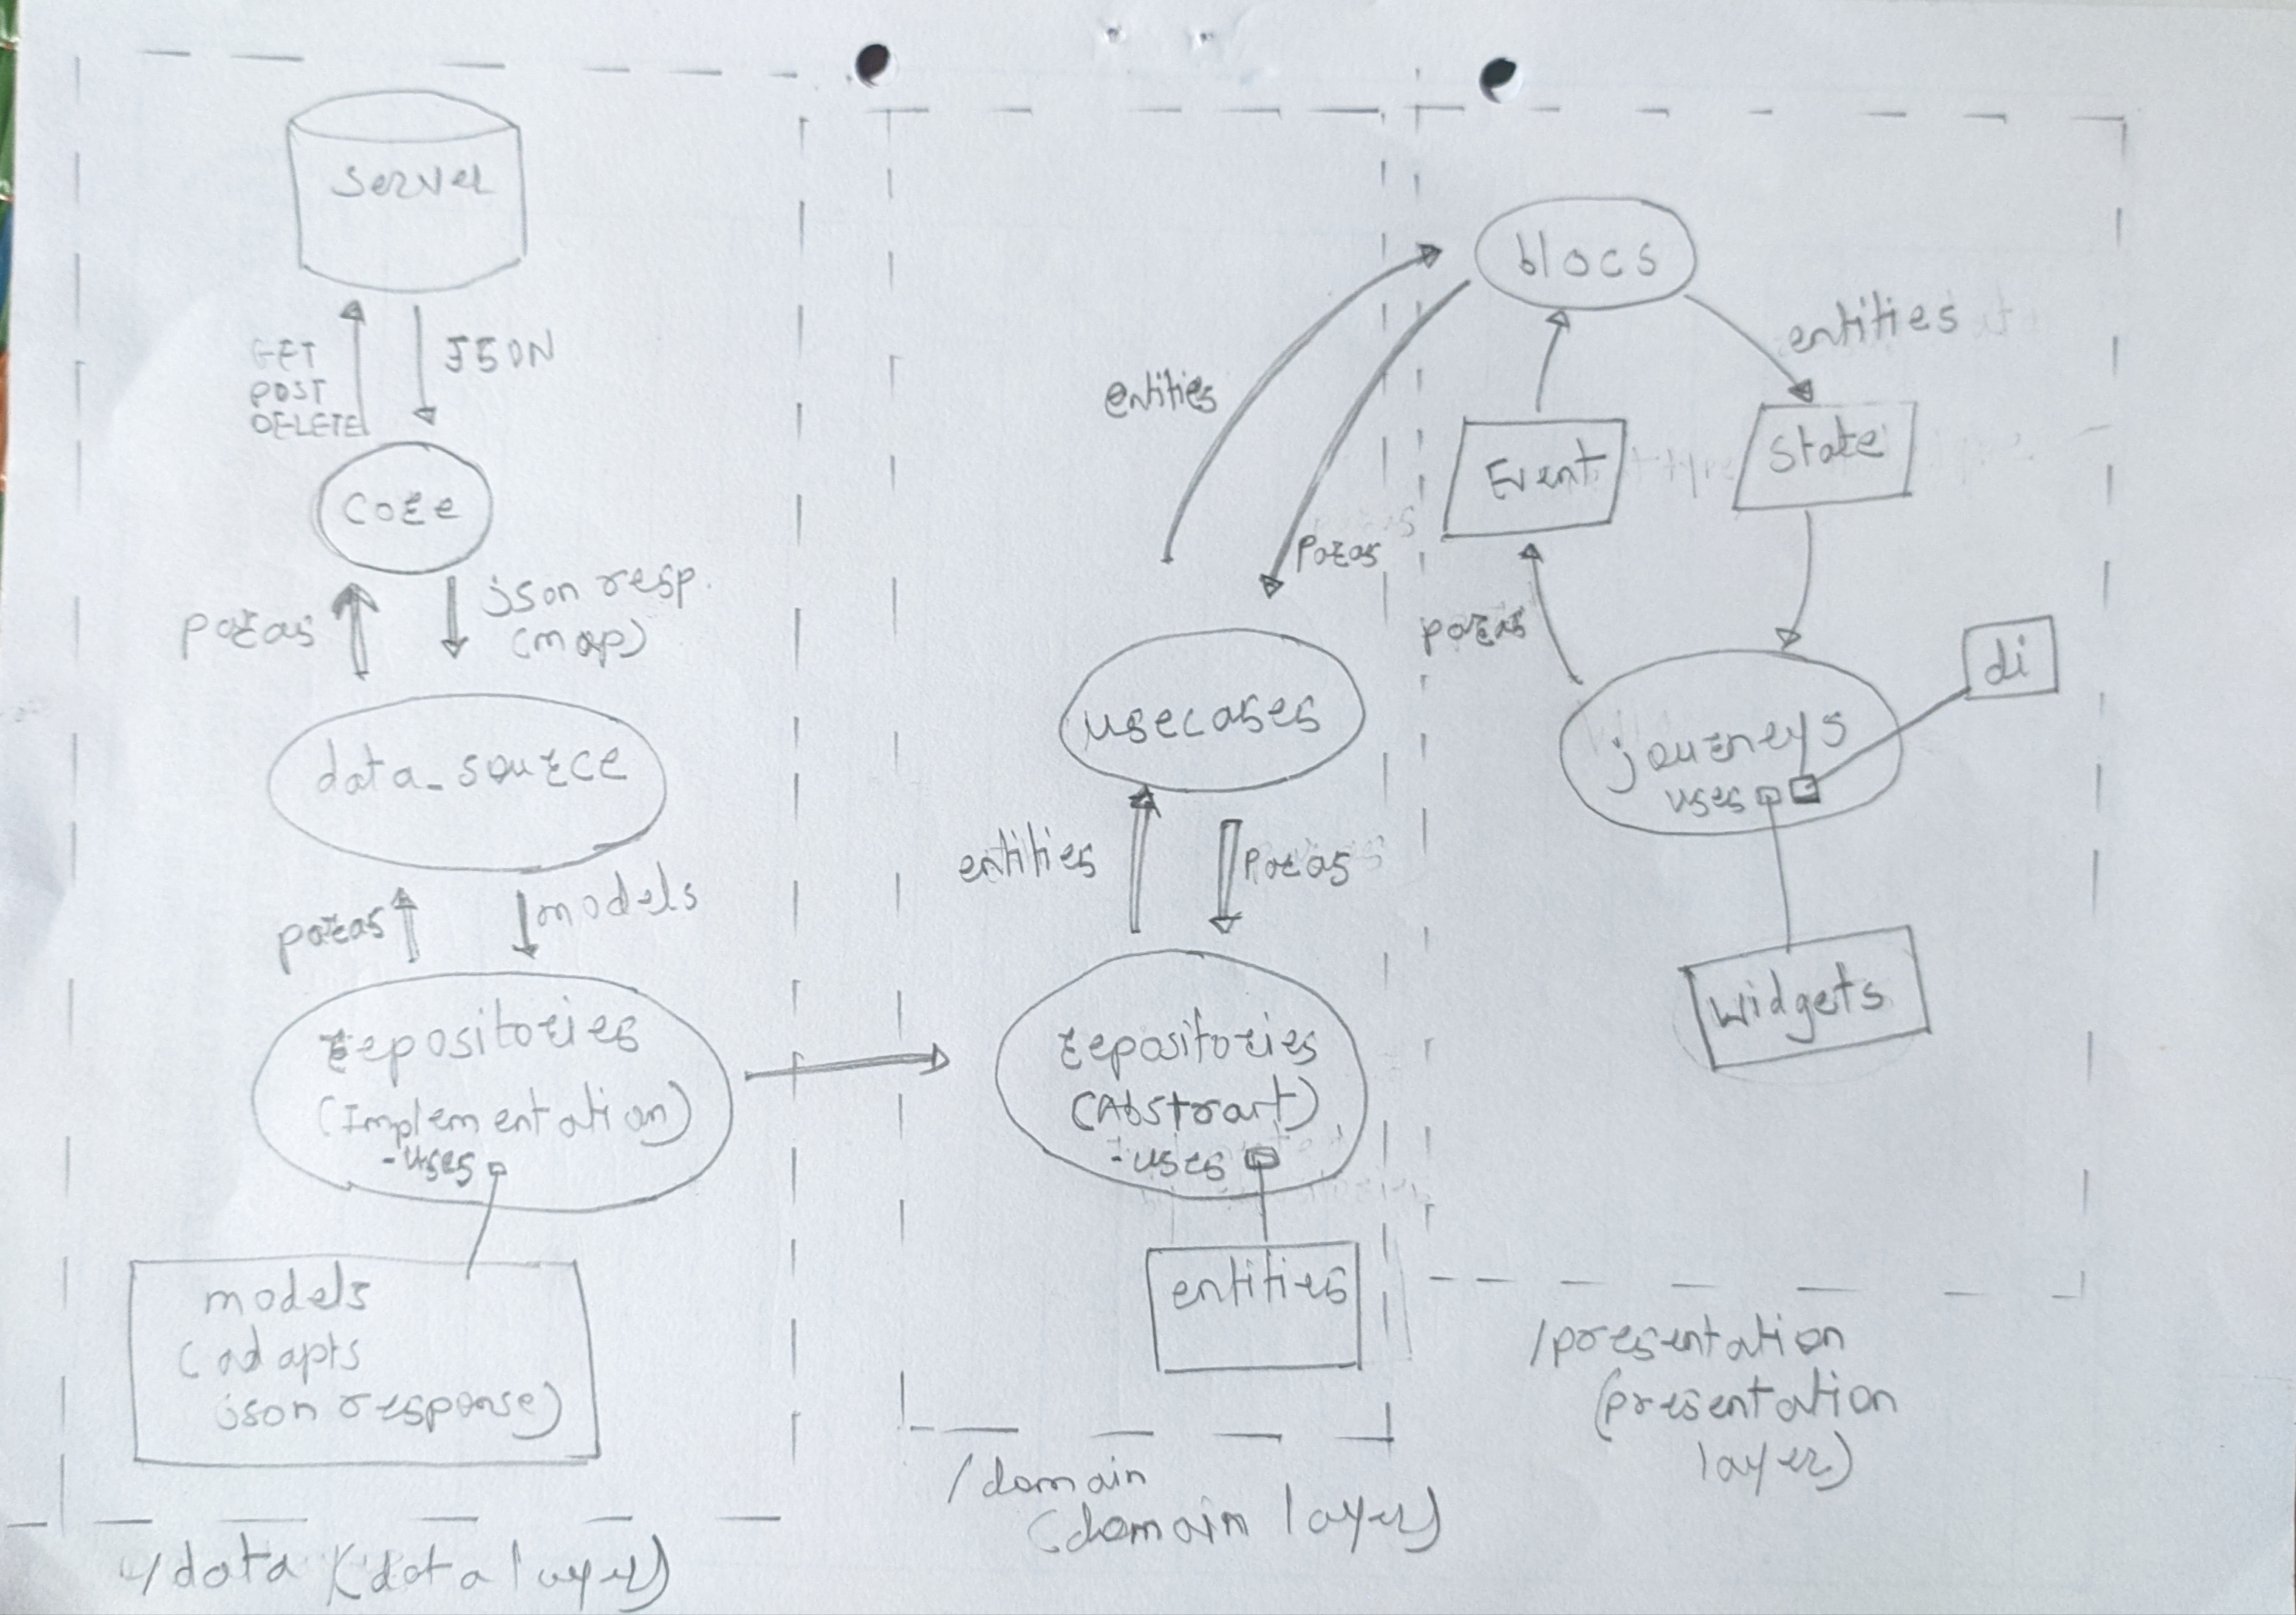 Server
GET
POST
DELETE
JSON
core
paras
json resp.
(map)
data_source
paras
models
repositories
(Implementation)
- uses
models
(adapts
json response)
/data (data layer)
entities
paras
usecases
entities
paras
repositories
(Abstract)
- uses
entities
/domain
(domain layer)
blocs
entities
Event
State
paras
journeys
uses
di
widgets
/presentation
(presentation
layer)